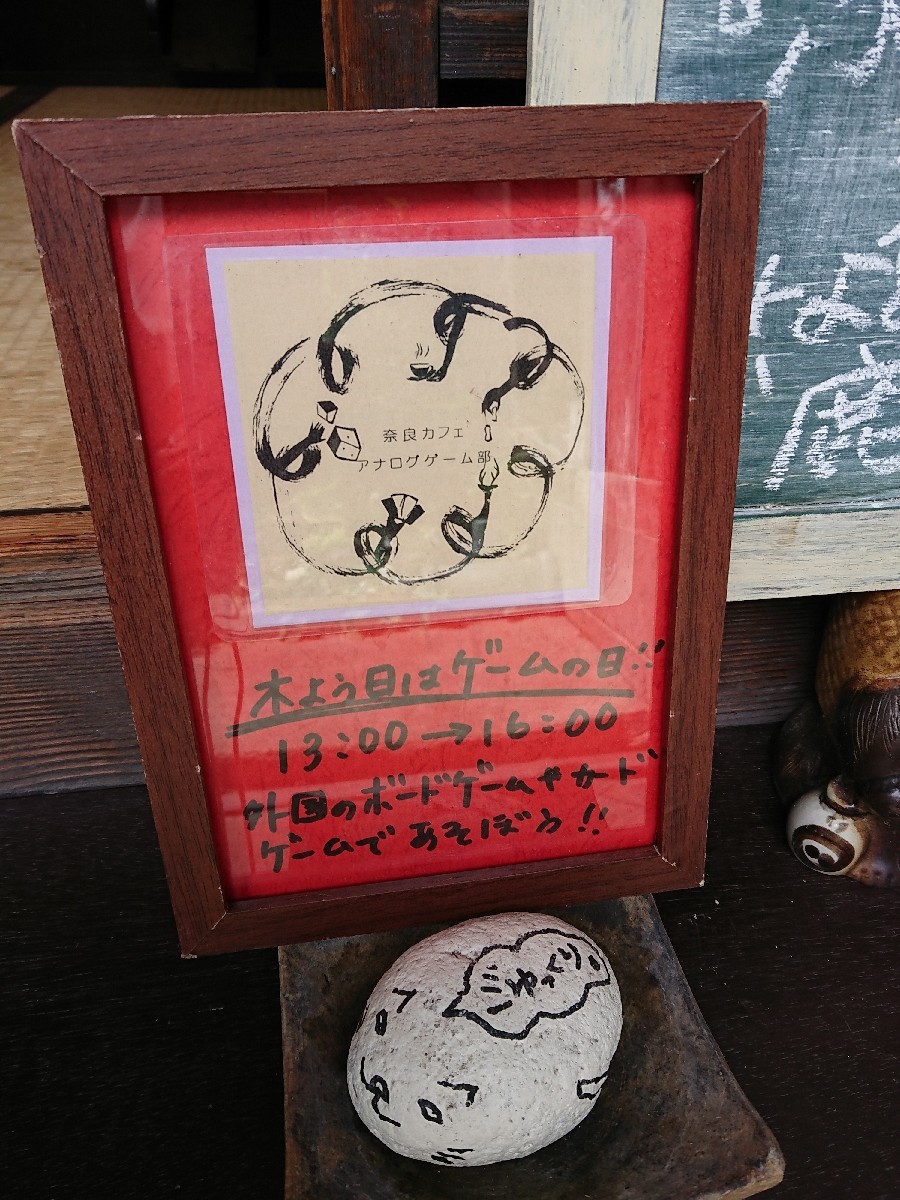 奈良カフェ
アナログゲーム部
木よう日はゲームの日!!
13:00→16:00
外国のボードゲームやカード
ゲームであそぼう!!